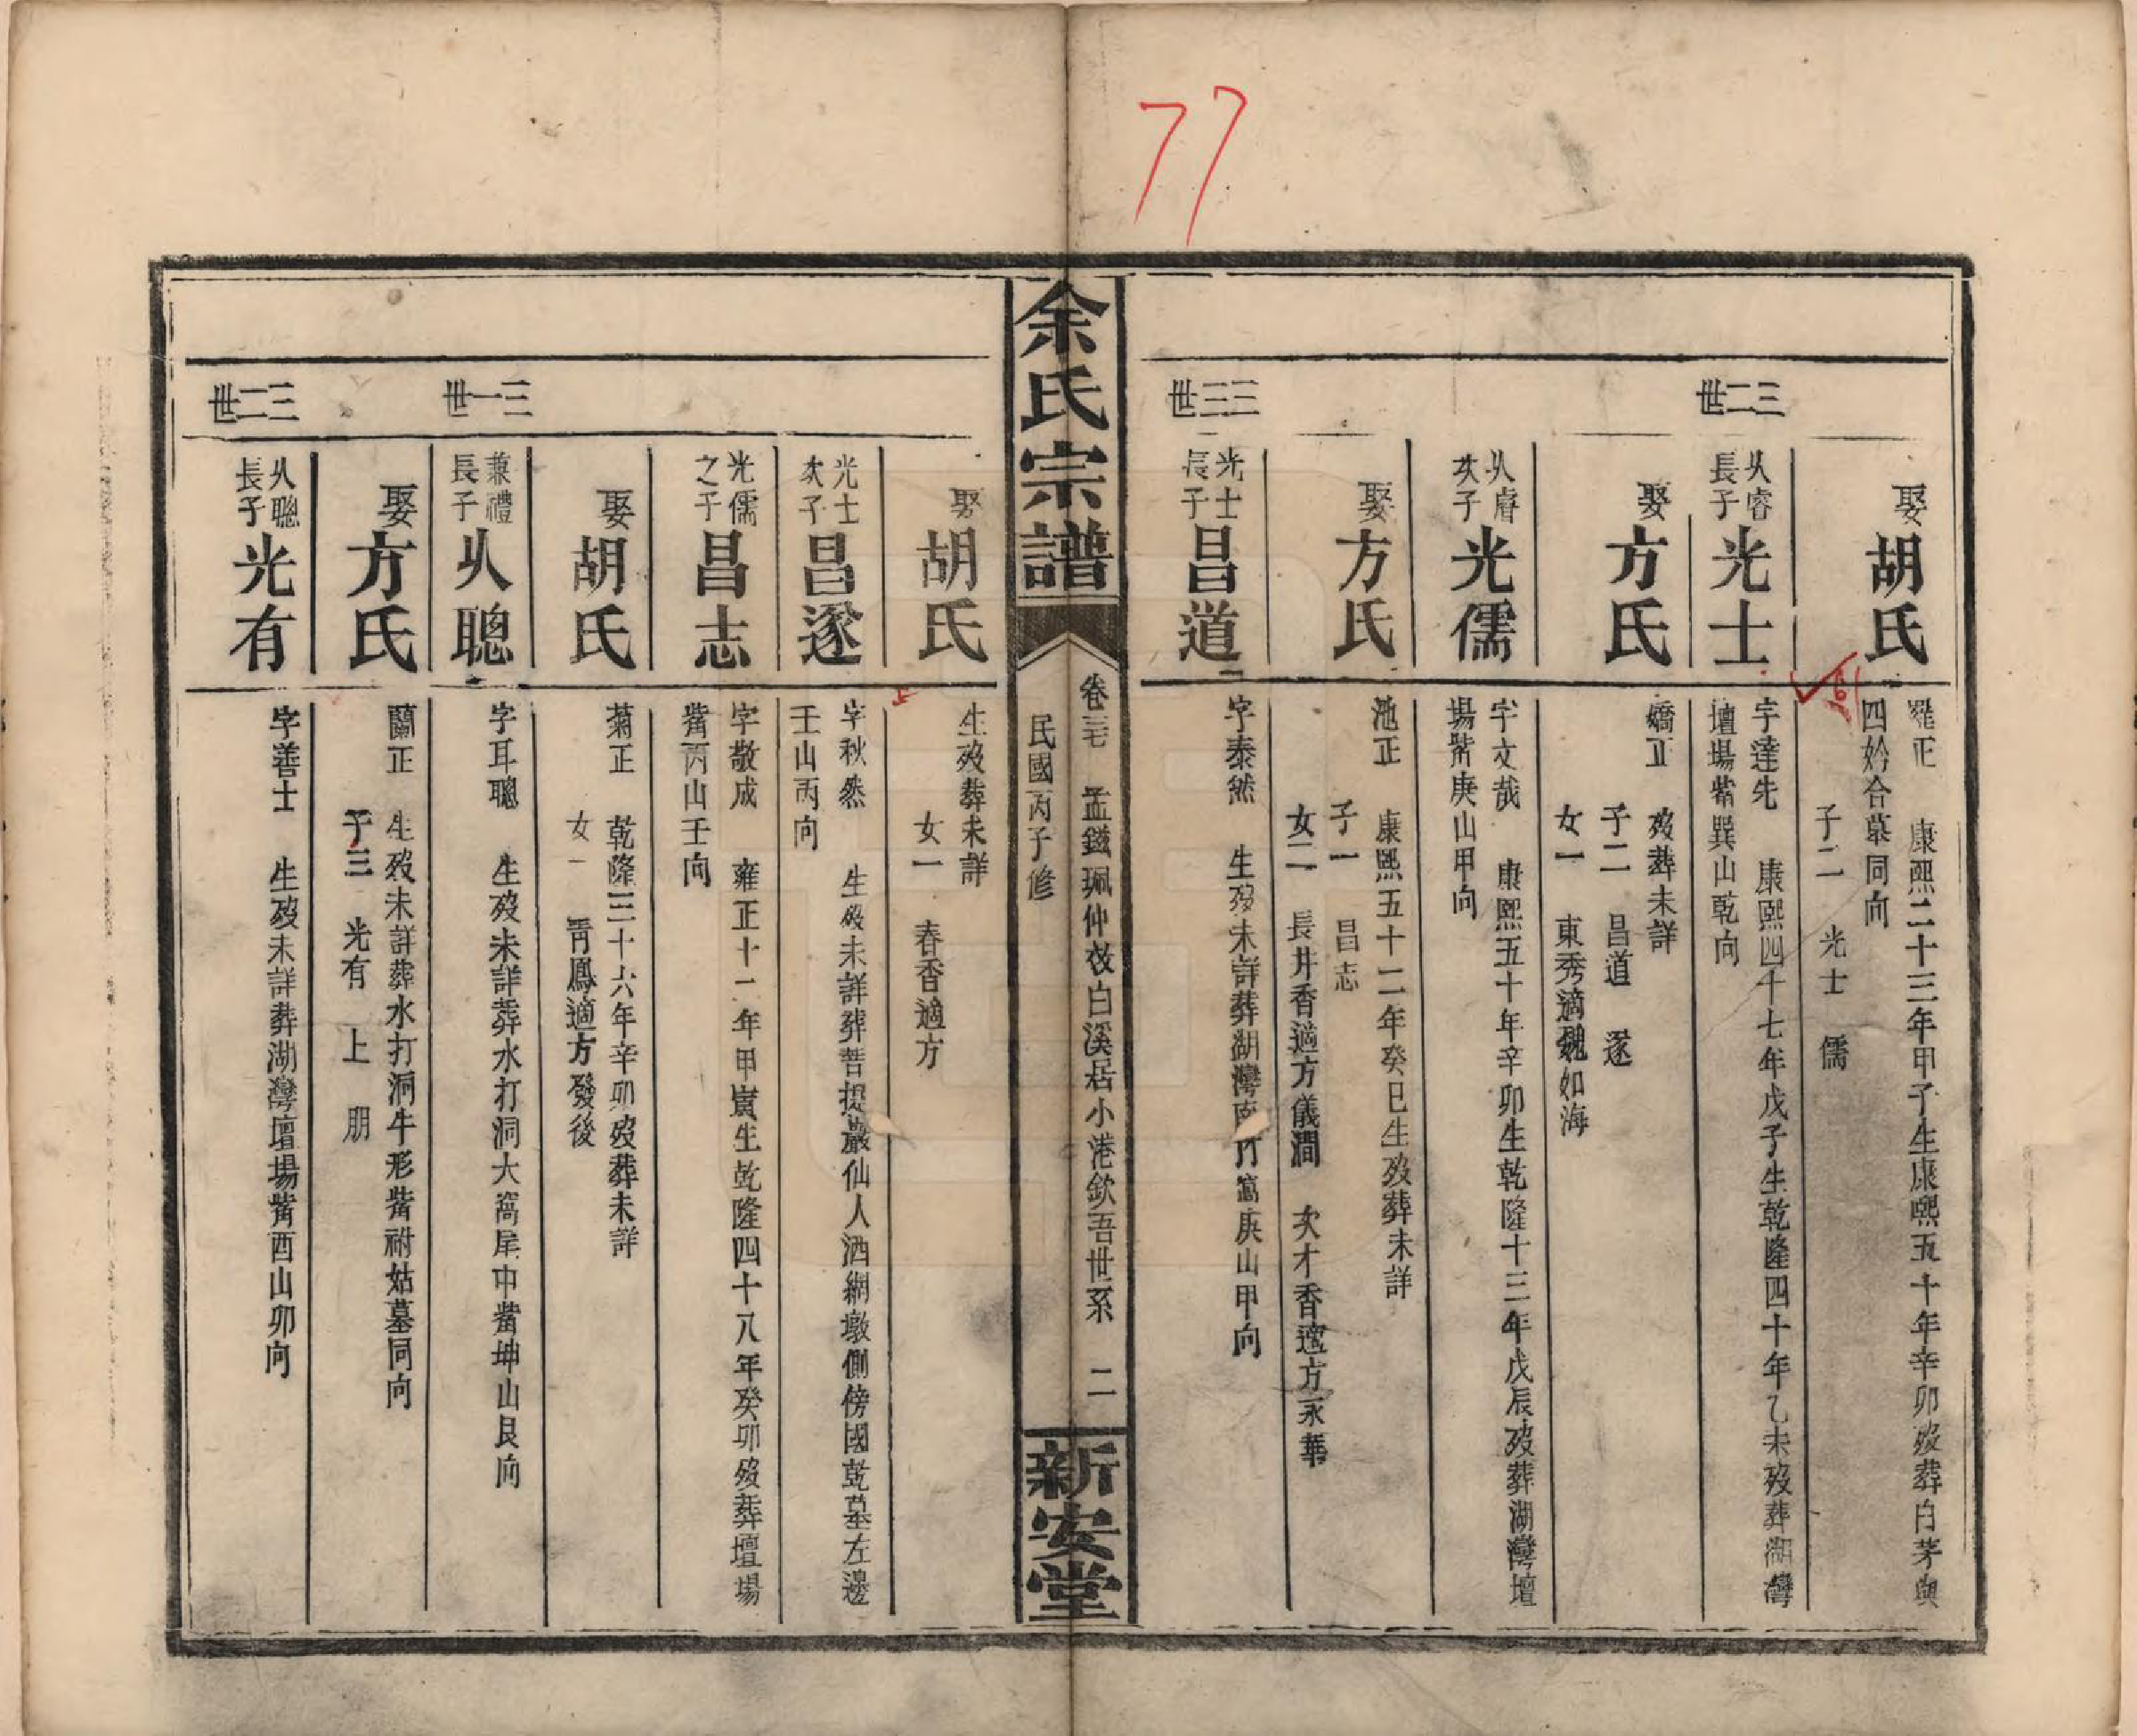 77
娶
胡氏
羅正 康熙二十三年甲子生康熙五十年辛卯歿葬白茅與
四妗合墓同向
子二 光士 儒
三二世
从睿
長子
光士
字達先 康熙四十七年戊子生乾隆四十年乙未歿葬湖灣
壇場嘴巽山乾向
娶
方氏
嬌正 歿葬未詳
子二 昌道 遂
女一 東秀適魏如海
从睿
次子
光儒
字文哉 康熙五十年辛卯生乾隆十三年戊辰歿葬湖灣壇
場嘴庚山甲向
娶
方氏
池正 康熙五十二年癸巳生歿葬未詳
子一 昌志
女二 長井香適方儀澗 次才香適方永華
三三世
光士
長子
昌道
字泰然 生歿未詳葬湖灣南竹窩庚山甲向
余氏宗譜
卷三七 孟鎡珮仲枝白溪居小港欽吾世系 二
民國丙子修
新安堂
娶
胡氏
生歿葬未詳
女一 春香適方
光士
次子
昌遂
字秋然 生歿未詳葬菩提巖仙人洒網墩側傍國乾墓左邊
壬山丙向
光儒
之子
昌志
字敬成 雍正十二年甲寅生乾隆四十八年癸卯歿葬壇場
嘴丙山壬向
娶
胡氏
菊正 乾隆三十六年辛卯歿葬未詳
女一 青鳳適方發後
三一世
兼禮
長子
从聰
字耳聰 生歿未詳葬水打洞大窩屋中嘴坤山艮向
娶
方氏
蘭正 生歿未詳葬水打洞牛形嘴祔姑墓同向
子三 光有 上 朋
三二世
从聰
長子
光有
字善士 生歿未詳葬湖灣壇場嘴酉山卯向